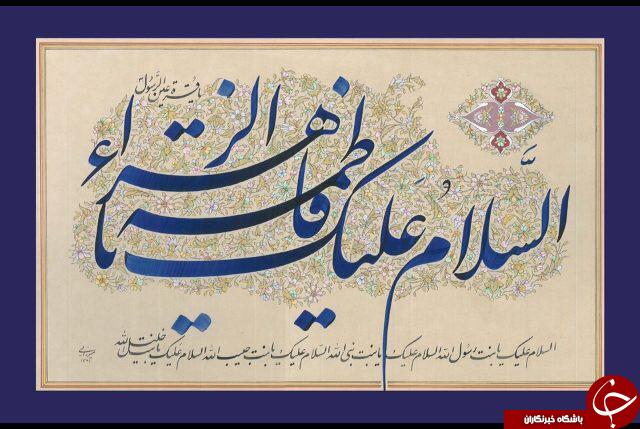 یا قرة عین الرسول
السلام علیک یا فاطمة الزهراء
السلام علیک یا بنت رسول الله السلام علیک یا بنت نبی الله السلام علیک یا بنت حبیب الله السلام علیک یا بنت خلیل الله
باشگاه خبرنگاران